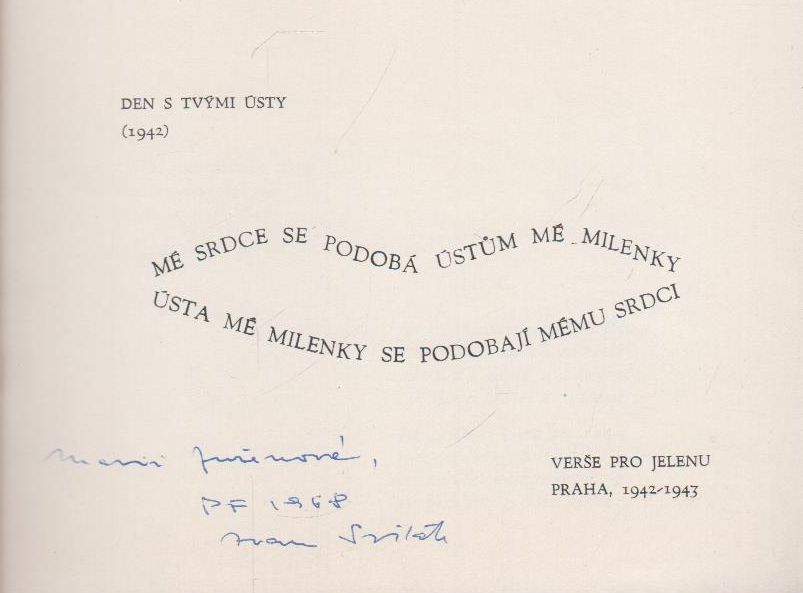 DEN S TVÝMI ÚSTY
(1942)
MÉ SRDCE SE PODOBÁ ÚSTŮM MÉ MILENKY
ÚSTA MÉ MILENKY SE PODOBAJÍ MÉMU SRDCI
VERŠE PRO JELENU
PRAHA, 1942-1943
PF 1968
Ivan Sviták